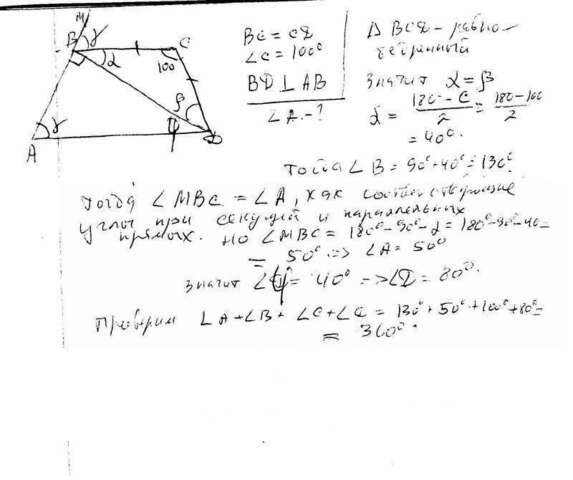 M
B γ C
α 100
β
ψ
A γ D
BC = CD
∠C = 100°
BD ⊥ AB
∠A - ?
Δ BCD - равно-
бедренный
значит α = β
α = (180 - C)/2 = (180 - 100)/2
= 40°.
Тогда ∠B = 90° + 40° = 130°.
Тогда ∠MBC = ∠A, как соответствующие
углы при секущей и параллельных
прямых. но ∠MBC = 180° - 90° - α = 180° - 90 - 40 =
= 50° => ∠A = 50°
значит ∠ψ = 40° => ∠D = 80°.
Проверим ∠A + ∠B + ∠C + ∠C = 130° + 50° + 100° + 80° =
= 360°.